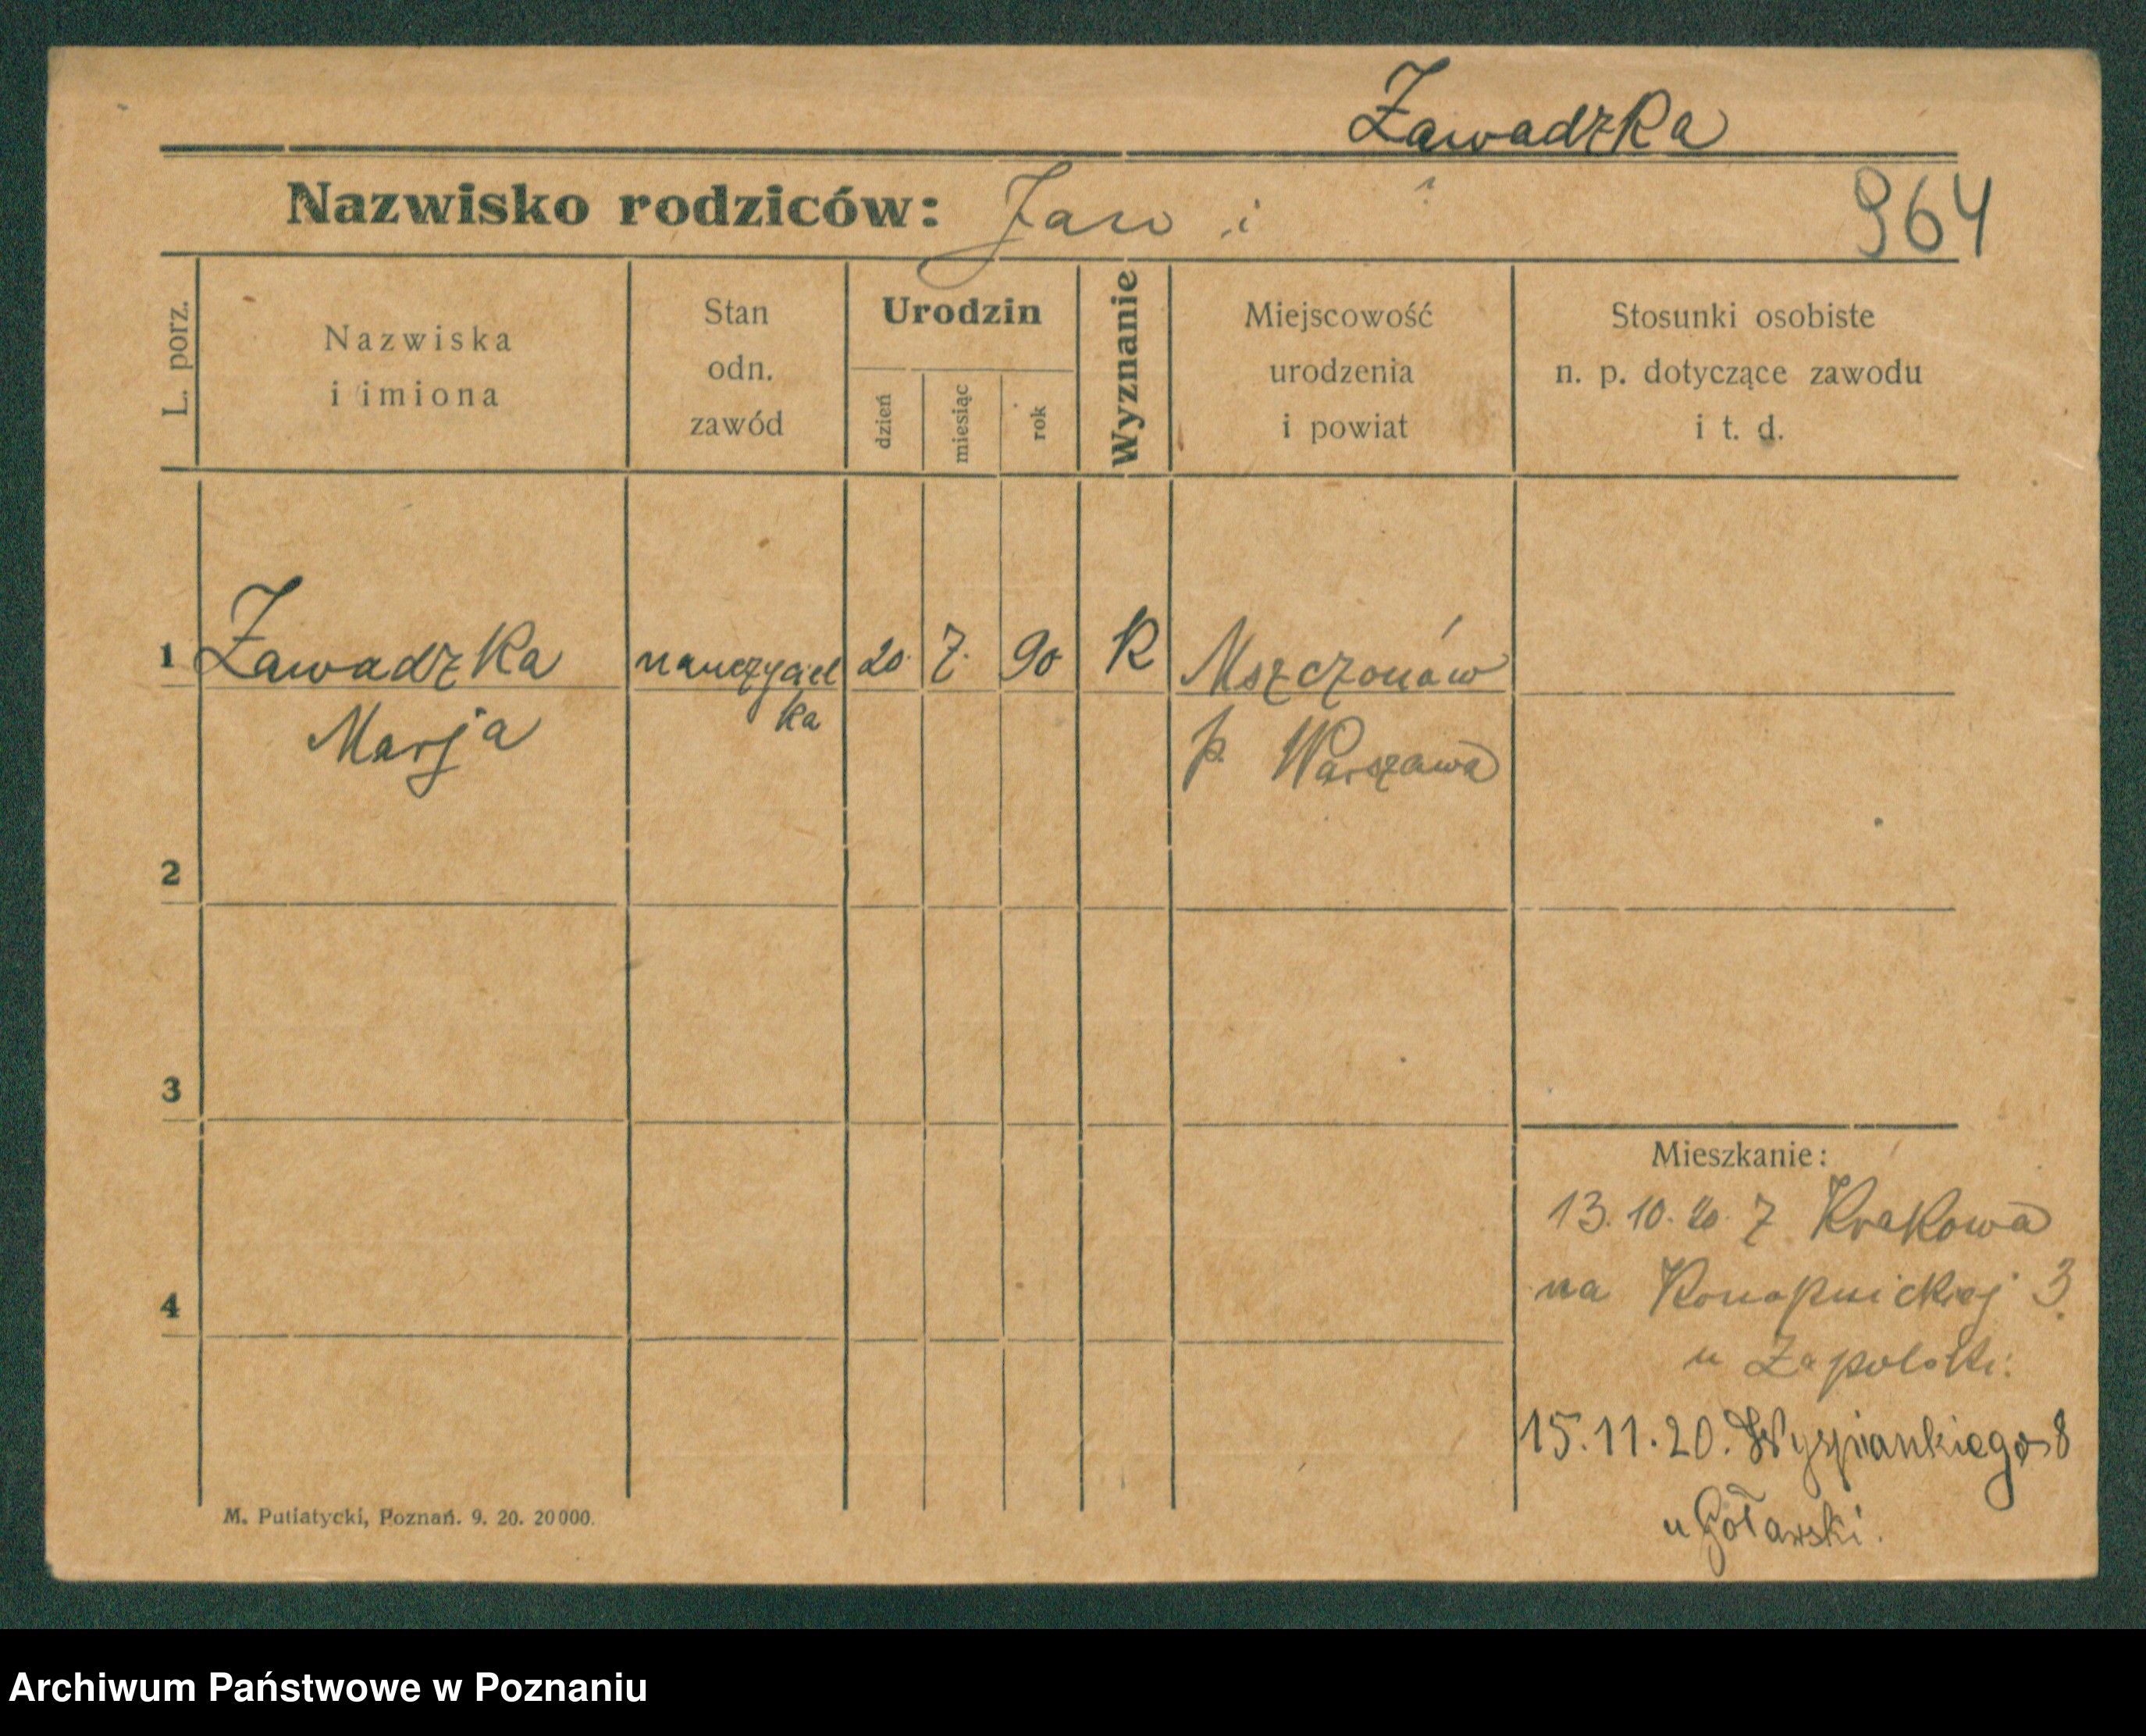 Zawadzka
Nazwisko rodziców: Jan i ?
964
L. porz.
Nazwiska
i imiona
Stan
odn.
zawód
Urodzin
dzień
miesiąc
rok
Wyznanie
Miejscowość
urodzenia
i powiat
Stosunki osobiste
n. p. dotyczące zawodu
i t. d.
1 Zawadzka nauczyciel 20. 7. 90 R Mszczonów
Marja ka p. Warszawa
2
3
4
Mieszkanie:
13. 10. 20. z Krakowa
na Konopnickiej 3.
u
15.11.20. Wyspiankiego 8
u Goławski.
M. Putiatycki, Poznań. 9. 20. 20000.
Archiwum Państwowe w Poznaniu